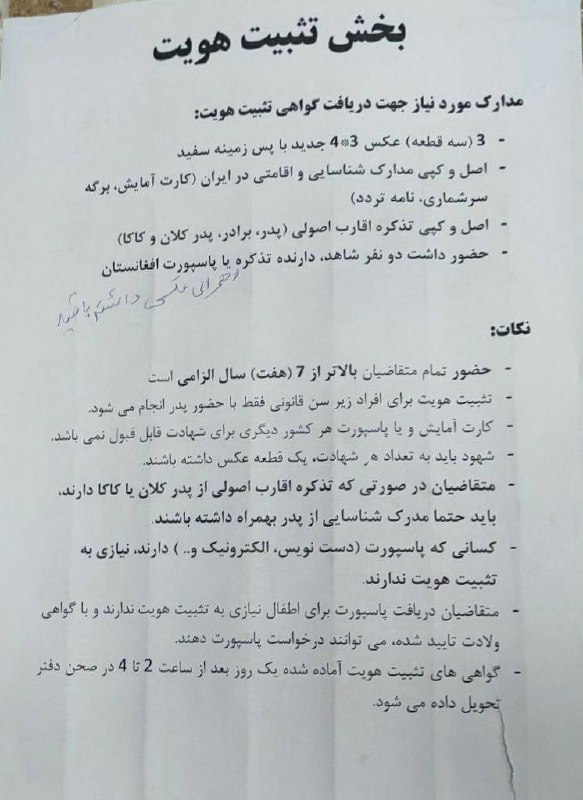 بخش تثبیت هویت
مدارک مورد نیاز جهت دریافت گواهی تثبیت هویت:
- 3 (سه قطعه) عکس 3*4 جدید با پس زمینه سفید
- اصل و کپی مدارک شناسایی و اقامتی در ایران (کارت آمایش، برگه
سرشماری، نامه تردد)
- اصل و کپی تذکره اقارب اصولی (پدر، برادر، پدر کلان و کاکا)
- حضور داشت دو نفر شاهد، دارنده تذکره یا پاسپورت افغانستان
عکس داشته باشند
نکات:
- حضور تمام متقاضیان بالاتر از 7 (هفت) سال الزامی است
- تثبیت هویت برای افراد زیر سن قانونی فقط با حضور پدر انجام می شود.
- کارت آمایش و یا پاسپورت هر کشور دیگری برای شهادت قابل قبول نمی باشد.
- شهود باید به تعداد هر شهادت، یک قطعه عکس داشته باشند.
- متقاضیان در صورتی که تذکره اقارب اصولی از پدر کلان یا کاکا دارند،
باید حتما مدرک شناسایی از پدر بهمراه داشته باشند.
- کسانی که پاسپورت (دست نویس، الکترونیک و.. ) دارند، نیازی به
تثبیت هویت ندارند.
- متقاضیان دریافت پاسپورت برای اطفال نیازی به تثبیت هویت ندارند و با گواهی
ولادت تایید شده، می توانند درخواست پاسپورت دهند.
- گواهی های تثبیت هویت آماده شده یک روز بعد از ساعت 2 تا 4 در صحن دفتر
تحویل داده می شود.